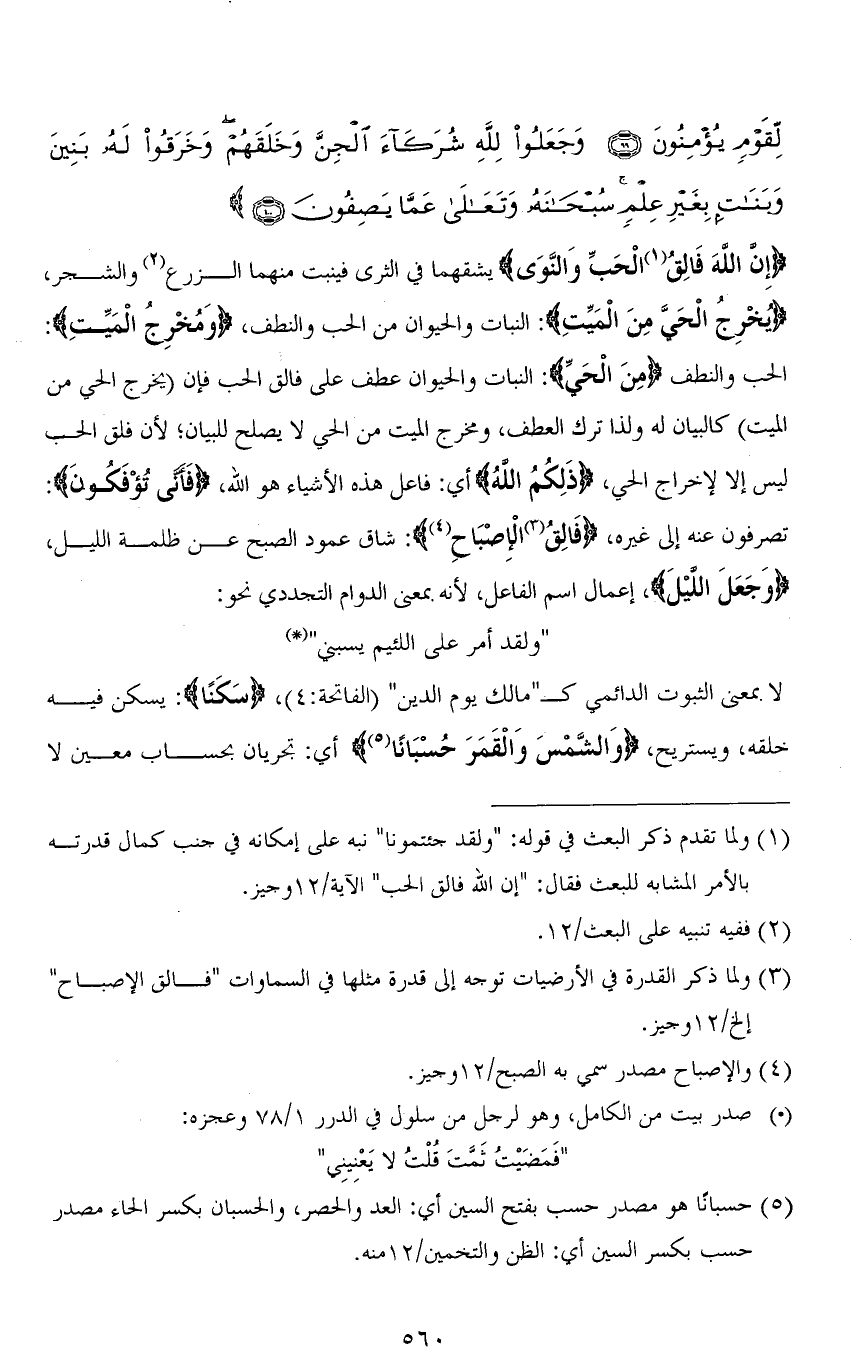 لِّقَوْمٍ يُؤْمِنُونَ ۝٩٩ وَجَعَلُوا۟ لِلَّهِ شُرَكَآءَ ٱلْجِنَّ وَخَلَقَهُمْ ۖ وَخَرَقُوا۟ لَهُۥ بَنِينَ
وَبَنَـٰتٍۭ بِغَيْرِ عِلْمٍ ۚ سُبْحَـٰنَهُۥ وَتَعَـٰلَىٰ عَمَّا يَصِفُونَ ۝١٠٠ ﴾
﴿إِنَّ اللَّهَ فَالِقُ(١) الْحَبِّ وَالنَّوَى﴾ يشقهما في الثرى فينبت منهما الزرع(٢) والشجر،
﴿يُخْرِجُ الْحَيَّ مِنَ الْمَيِّتِ﴾: النبات والحيوان من الحب والنطف، ﴿وَمُخْرِجُ الْمَيِّتِ﴾:
الحب والنطف ﴿مِنَ الْحَيِّ﴾: النبات والحيوان عطف على فالق الحب فإن (يخرج الحي من
الميت) كالبيان له ولذا ترك العطف، ومخرج الميت من الحي لا يصلح للبيان؛ لأن فلق الحب
ليس إلا لإخراج الحي، ﴿ذَلِكُمُ اللَّهُ﴾ أي: فاعل هذه الأشياء هو الله، ﴿فَأَنَّى تُؤْفَكُونَ﴾:
تصرفون عنه إلى غيره، ﴿فَالِقُ(٣) الْإِصْبَاحِ(٤)﴾: شاق عمود الصبح عن ظلمة الليل،
﴿وَجَعَلَ اللَّيْلَ﴾، إعمال اسم الفاعل، لأنه بمعنى الدوام التجددي نحو:
"ولقد أمر على اللئيم يسبني"(*)
لا بمعنى الثبوت الدائمي كـ"مالك يوم الدين" (الفاتحة:٤)، ﴿سَكَنًا﴾: يسكن فيه
خلقه، ويستريح، ﴿وَالشَّمْسَ وَالْقَمَرَ حُسْبَانًا(٥)﴾ أي: تجريان بحساب معين لا
(١) ولما تقدم ذكر البعث في قوله: "ولقد جئتمونا" نبه على إمكانه في جنب كمال قدرته
بالأمر المشابه للبعث فقال: "إن الله فالق الحب" الآية/١٢وجيز.
(٢) ففيه تنبيه على البعث/١٢.
(٣) ولما ذكر القدرة في الأرضيات توجه إلى قدرة مثلها في السماوات "فالق الإصباح"
إلخ/١٢وجيز.
(٤) والإصباح مصدر سمي به الصبح/١٢وجيز.
(*) صدر بيت من الكامل، وهو لرجل من سلول في الدرر ٧٨/١ وعجزه:
"فَمَضَيْتُ ثَمَّتَ قُلْتُ لا يَعْنِينِي"
(٥) حسبانًا هو مصدر حسب بفتح السين أي: العد والحصر، والحسبان بكسر الحاء مصدر
حسب بكسر السين أي: الظن والتخمين/١٢منه.
٥٦٠